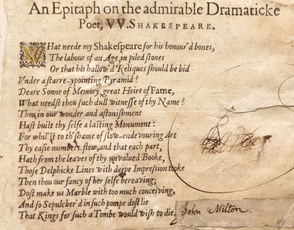 An Epitaph on the admirable Dramaticke
Poet, VV. SHAKESPEARE.
WHat neede my Shakespeare for his honour'd bones,
The labour of an Age, in piled stones
Or that his hallow'd Reliques should be hid
Under a starre-ypointing Pyramid?
Deare Sonne of Memory, great Heire of Fame,
What needst thou such dull witnesse of thy Name?
Thou in our wonder and astonishment
Hast built thy selfe a lasting Monument:
For whil'st to th' shame of slow-endevouring Art
Thy easie numbers flow, and that each part,
Hath from the leaves of thy unvalued Booke,
Those Delphicke Lines with deepe Impression tooke
Then thou our fancy of her selfe bereaving,
Dost make us Marble with too much conceiving,
And so Sepulcher'd in such pompe dost lie
That Kings for such a Tombe would wish to die.
John Milton